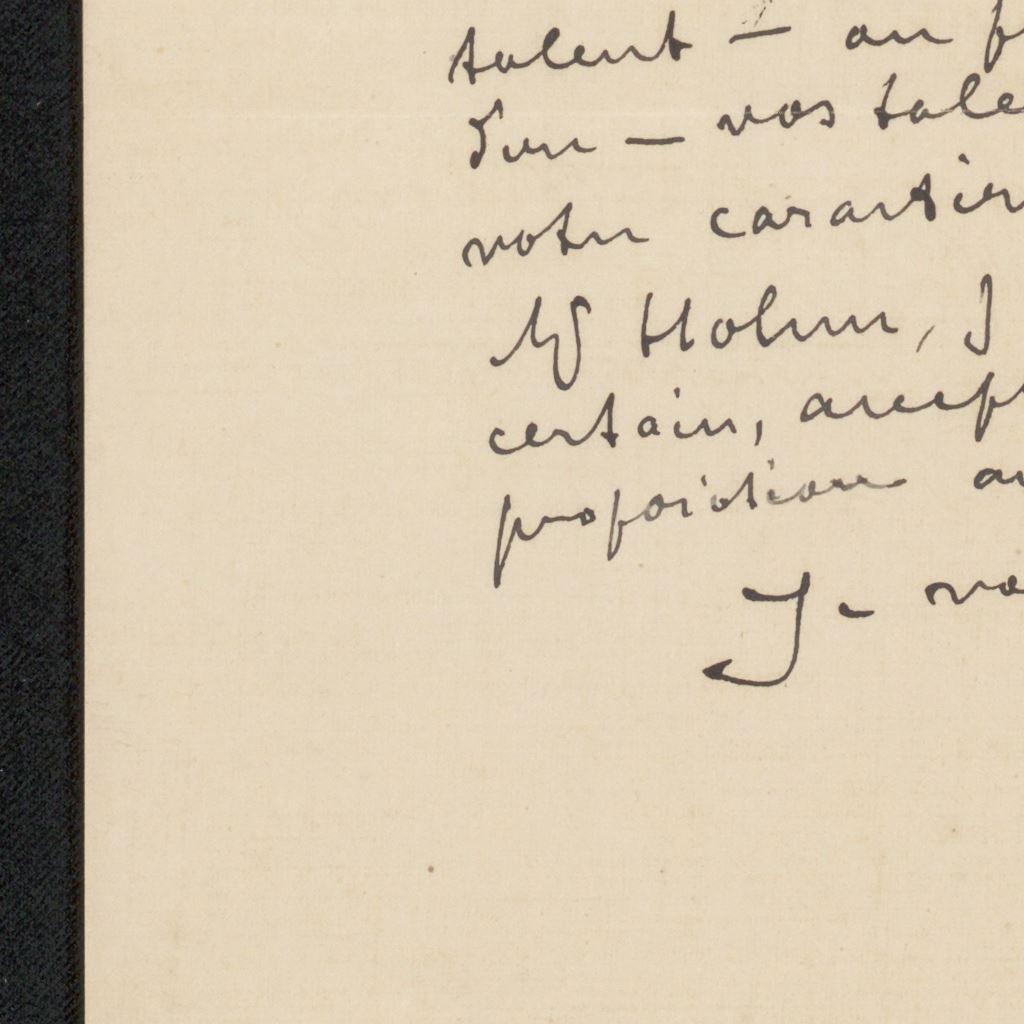 talent — au
dire — vos tale
votre caractèr
Mr Holme, J
certain, accept
propositions au
Je vo